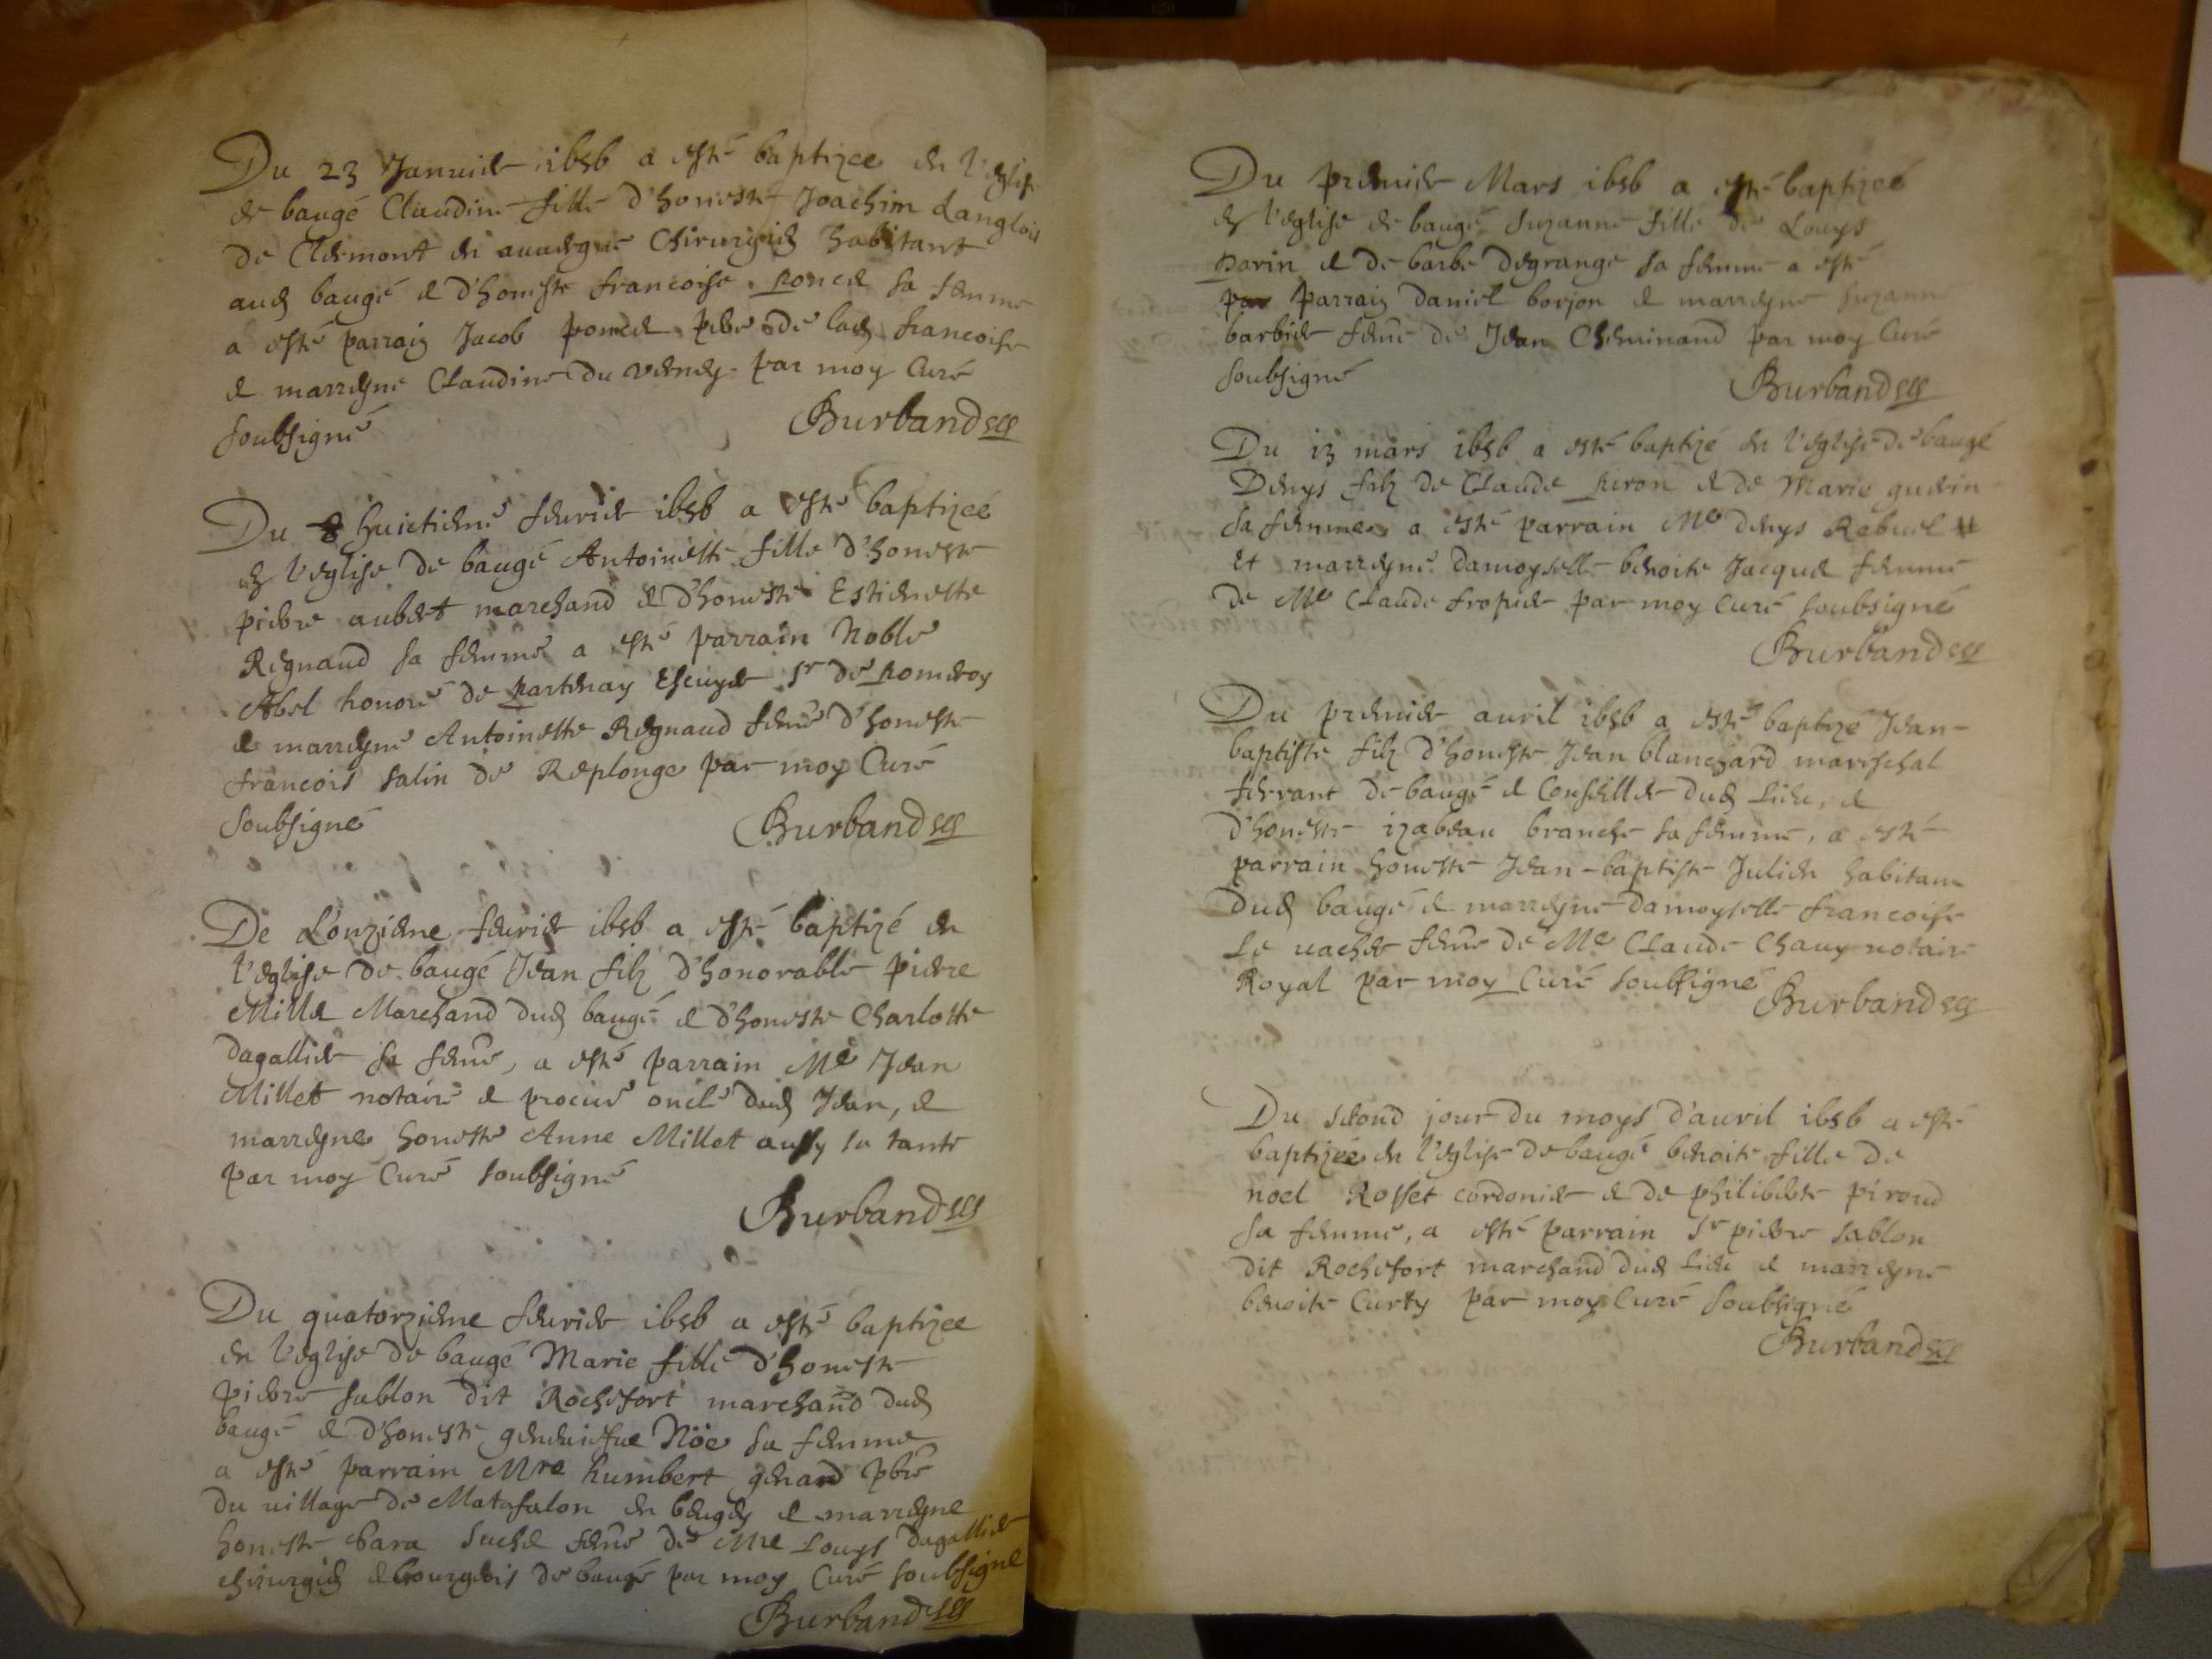 Du 23 Januier 1656 a esté baptizee en l'eglise
de baugé Claudine fille d'honeste Joachim Langlois
de Clermont en auuergne Chirurgien habitant
aud baugé et d'honeste francoise poncet sa femme
a esté parrain Jacob poncet pere de lad francoise
et marreyne Claudine du verney par moy Curé
soubsigné
Burband
Du huictieme feurier 1656 a esté baptizeé
en l'eglise de baugé Antoinette fille d'honeste
pierre aubert marchand et d'honeste Estienette
Regnaud sa femme a esté parrain Noble
Abel honoré de partenay Escuyer Sr de pomeroy
et marreyne Antoinette Regnaud feme d'honeste
francois salin de Replonge par moy Curé
soubsigné
Burband
De L'onzieme feurier 1656 a esté baptizé en
l'eglise de baugé Jean filz d'honorable pierre
Millet Marchand dud baugé et d'honeste Charlotte
dagallier sa feme, a esté parrain Me Jean
Millet notaire et procur oncle dud Jean, et
marreyne honeste Anne Millet aussy sa tante
par moy Curé soubsigné
Burband
Du quatorzieme feurier 1656 a esté baptizee
en l'eglise de baugé Marie fille d'honeste
pierre sablon dit Rochefort marchand dud
baugé et d'honeste geneuiefue Nöe sa femme
a esté parrain Mre humbert genard pbre
du uillage de Matafalon en beugey et marreyne
honeste Sara Suchet feme de Mre Louys dagallier
chirurgien et bourgeois de baugé par moy Curé soubsigne
Burband
Du premier Mars 1656 a esté baptizeé
en l'eglise de baugé Suzanne fille de Louys
parin et de barbe degrange sa femme a esté
parrain daniel borjon et marreyne Suzanne
barbier feme de Jean Cheminand par moy Curé
soubsigné
Burband
Du 13 mars 1656 a esté baptizé en l'eglise de baugé
Denys filz de Claude piron et de Marie guerin
sa femme a esté parrain Me denys Rebuel
Et marreyne damoyselle benoite Jacquet femme
de Me Claude fropier par moy Curé soubsigné
Burband
Du premier auril 1656 a esté baptizé Jean-
baptiste filz d'honeste Jean blanchard mareschal
ferrant de baugé et Conseiller dud Lieu, et
d'honeste izabeau branche sa femme, a esté
parrain honeste Jean-baptiste Julien habitant
dud baugé et marreyne damoyselle francoise
Le uacher feme de Me Claude Chauy notaire
Royal par moy Curé soubsigné
Burband
Du second jour du moys d'auril 1656 a esté
baptizeé en l'eglise de baugé benoite fille de
noel Rosset cordonier et de philiberte piroud
sa femme, a esté parrain Sr pierre sablon
dit Rochefort marchand dud Lieu et marreyne
benoite Curty par moy Curé soubsigné
Burband